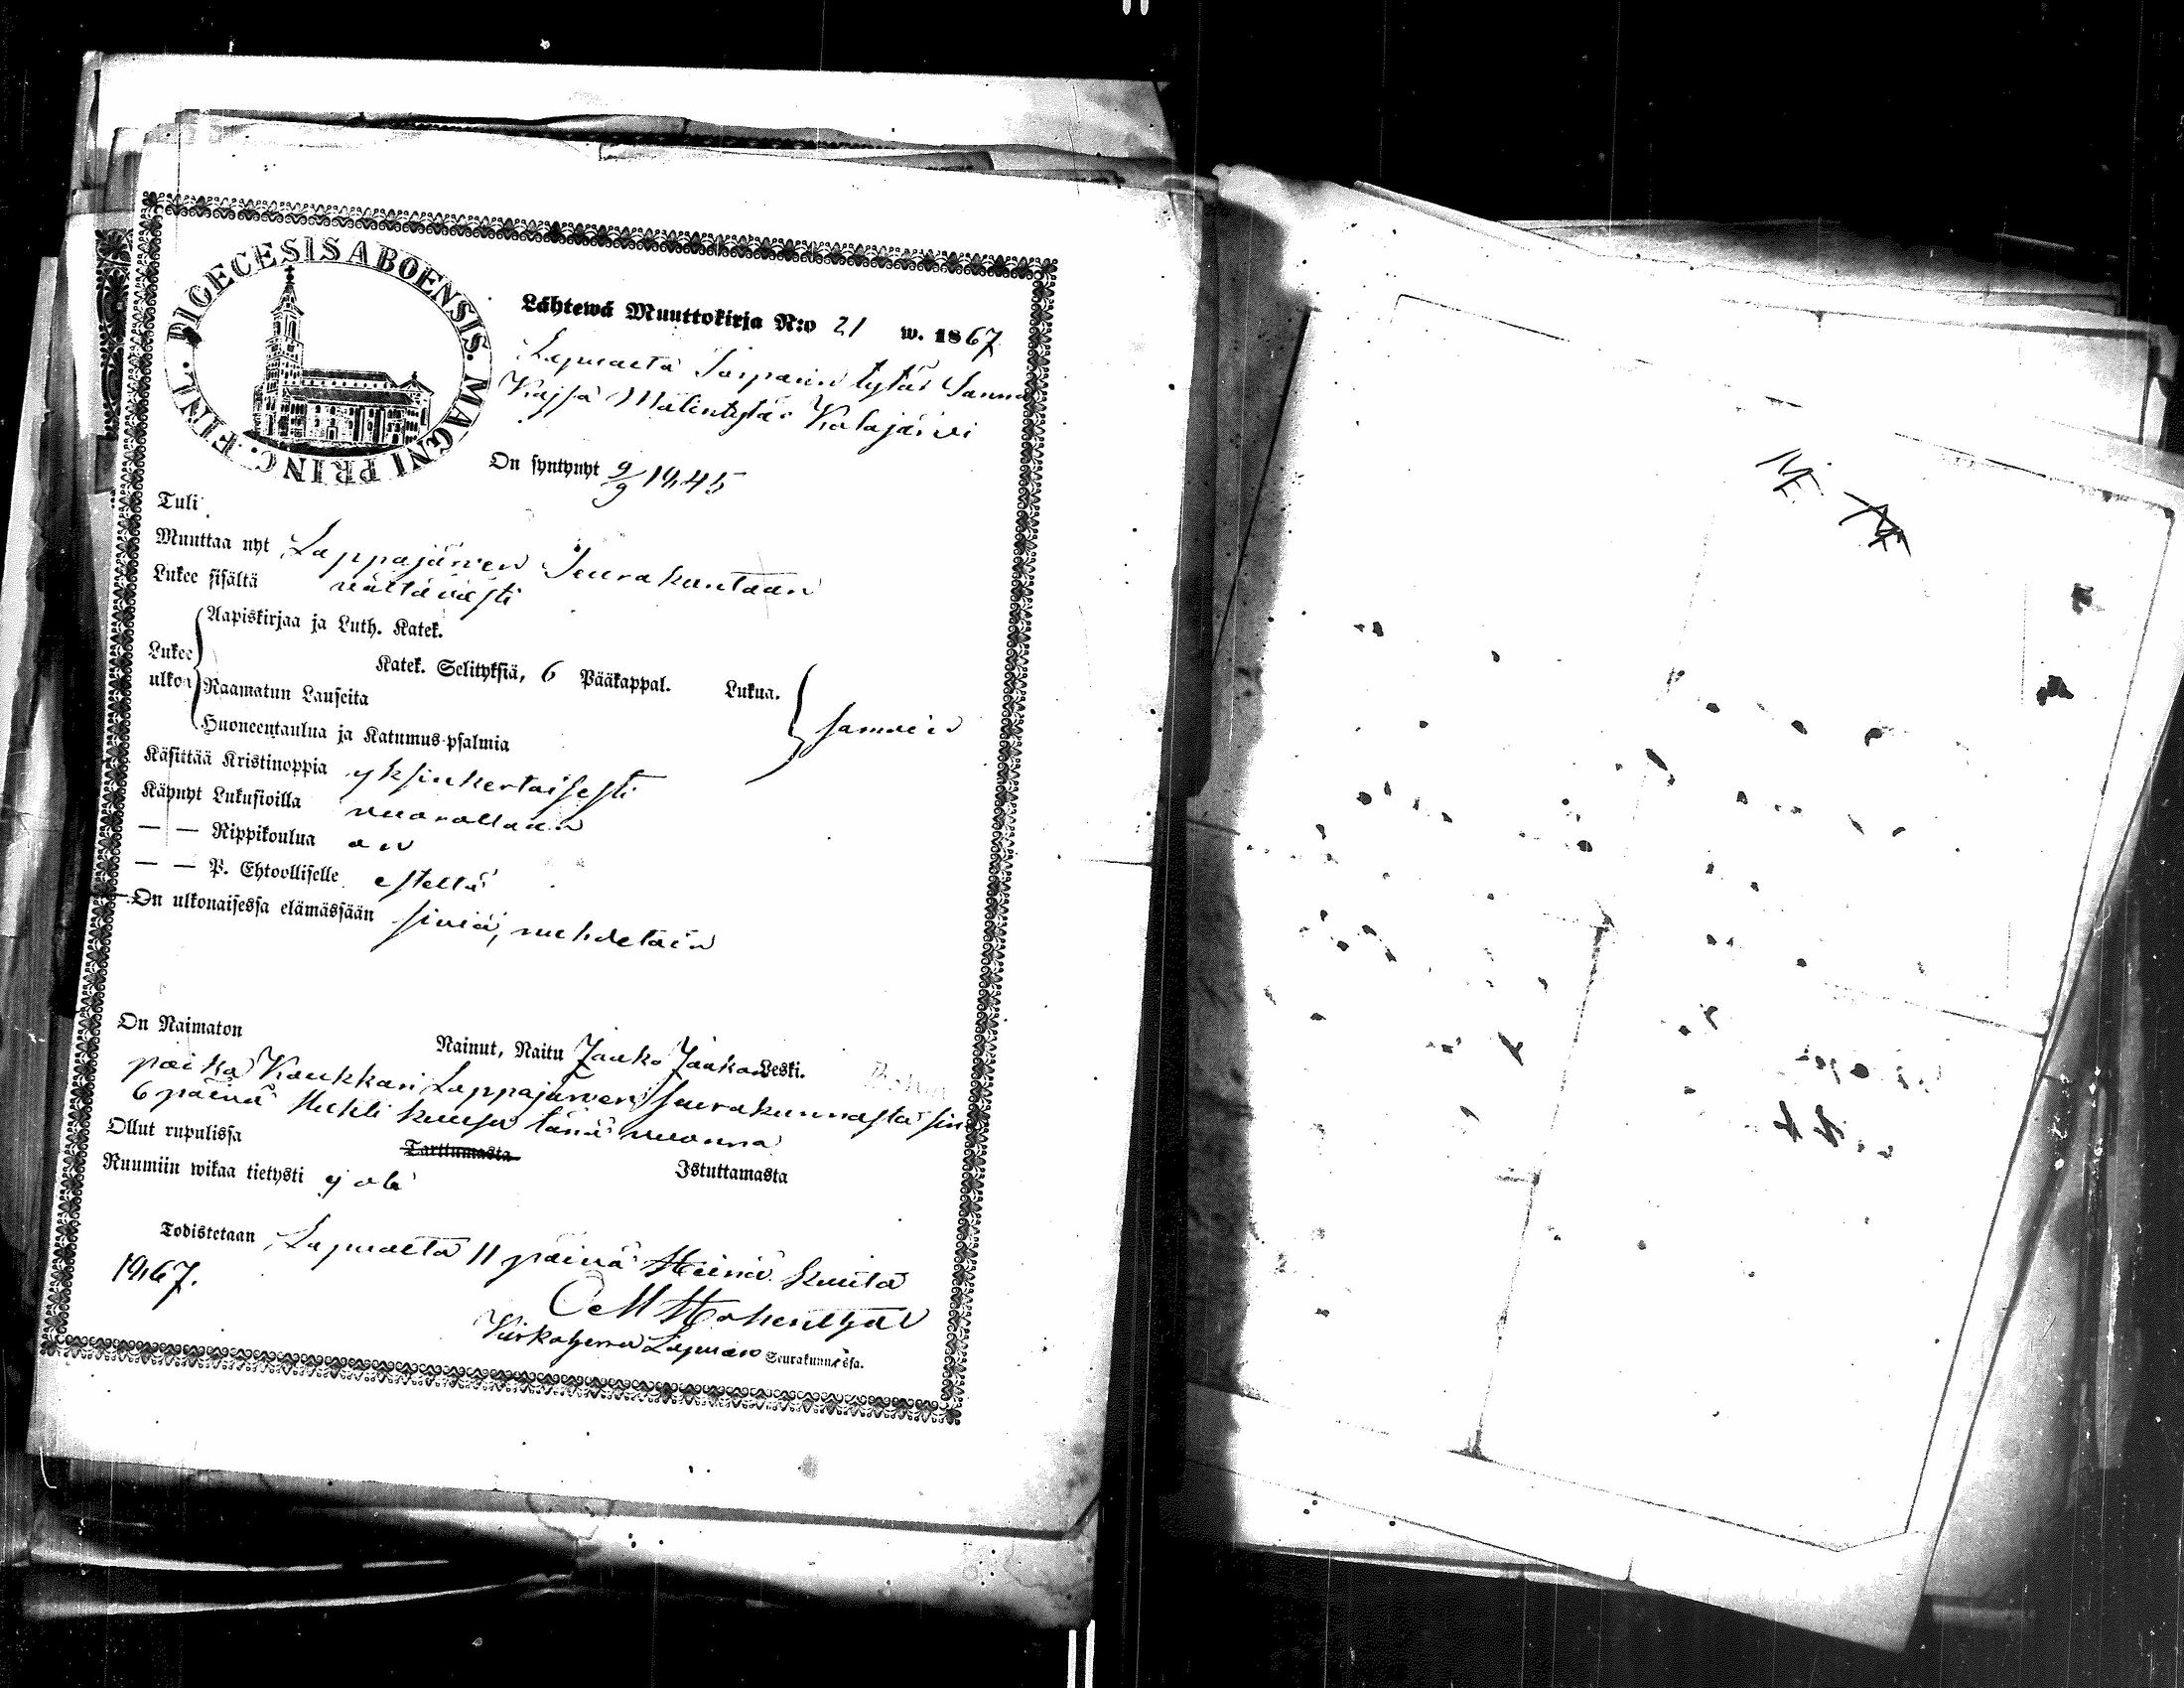 DIOECESIS ABOENSIS. MAGNI PRINC. FINL.
Lähtewä Muuttokirja N:o 21 w. 1867
Lapualta tytär Sanna
Kajsa Matintytär Kalajärvi
On syntynyt 9/9 1845
Tuli
Muuttaa nyt Lappajärven Seurakuntaan
Lukee sisältä välttävästi
Aapiskirjaa ja Luth. Katek.
Lukee ulkoa Katek. Selityksiä, 6 Pääkappal. Lukua.
Raamatun Lauseita samoin
Huoneentaulua ja Katumus-psalmia
Käsittää Kristinoppia yksinkertaisesti
Käynyt Lukusioilla vuorollaan
— — Rippikoulua on
— — P. Ehtoolliselle estettä
On ulkonaisessa elämässään siviä,
On Naimaton Nainut, Naitu Jaako Jaakon Leski.
poika Kaukkari Lappajärven Seurakunnasta sin
6 päivä Huhti kuusa tänä vuonna
Ollut rupulissa Tarttumasta Istuttamasta
Ruumiin wikaa tietysti ej ole
Todistetaan Lapualta 11 päivä Heinä kuuta
1867.
Kirkoherra Lapuan Seurakunnassa.